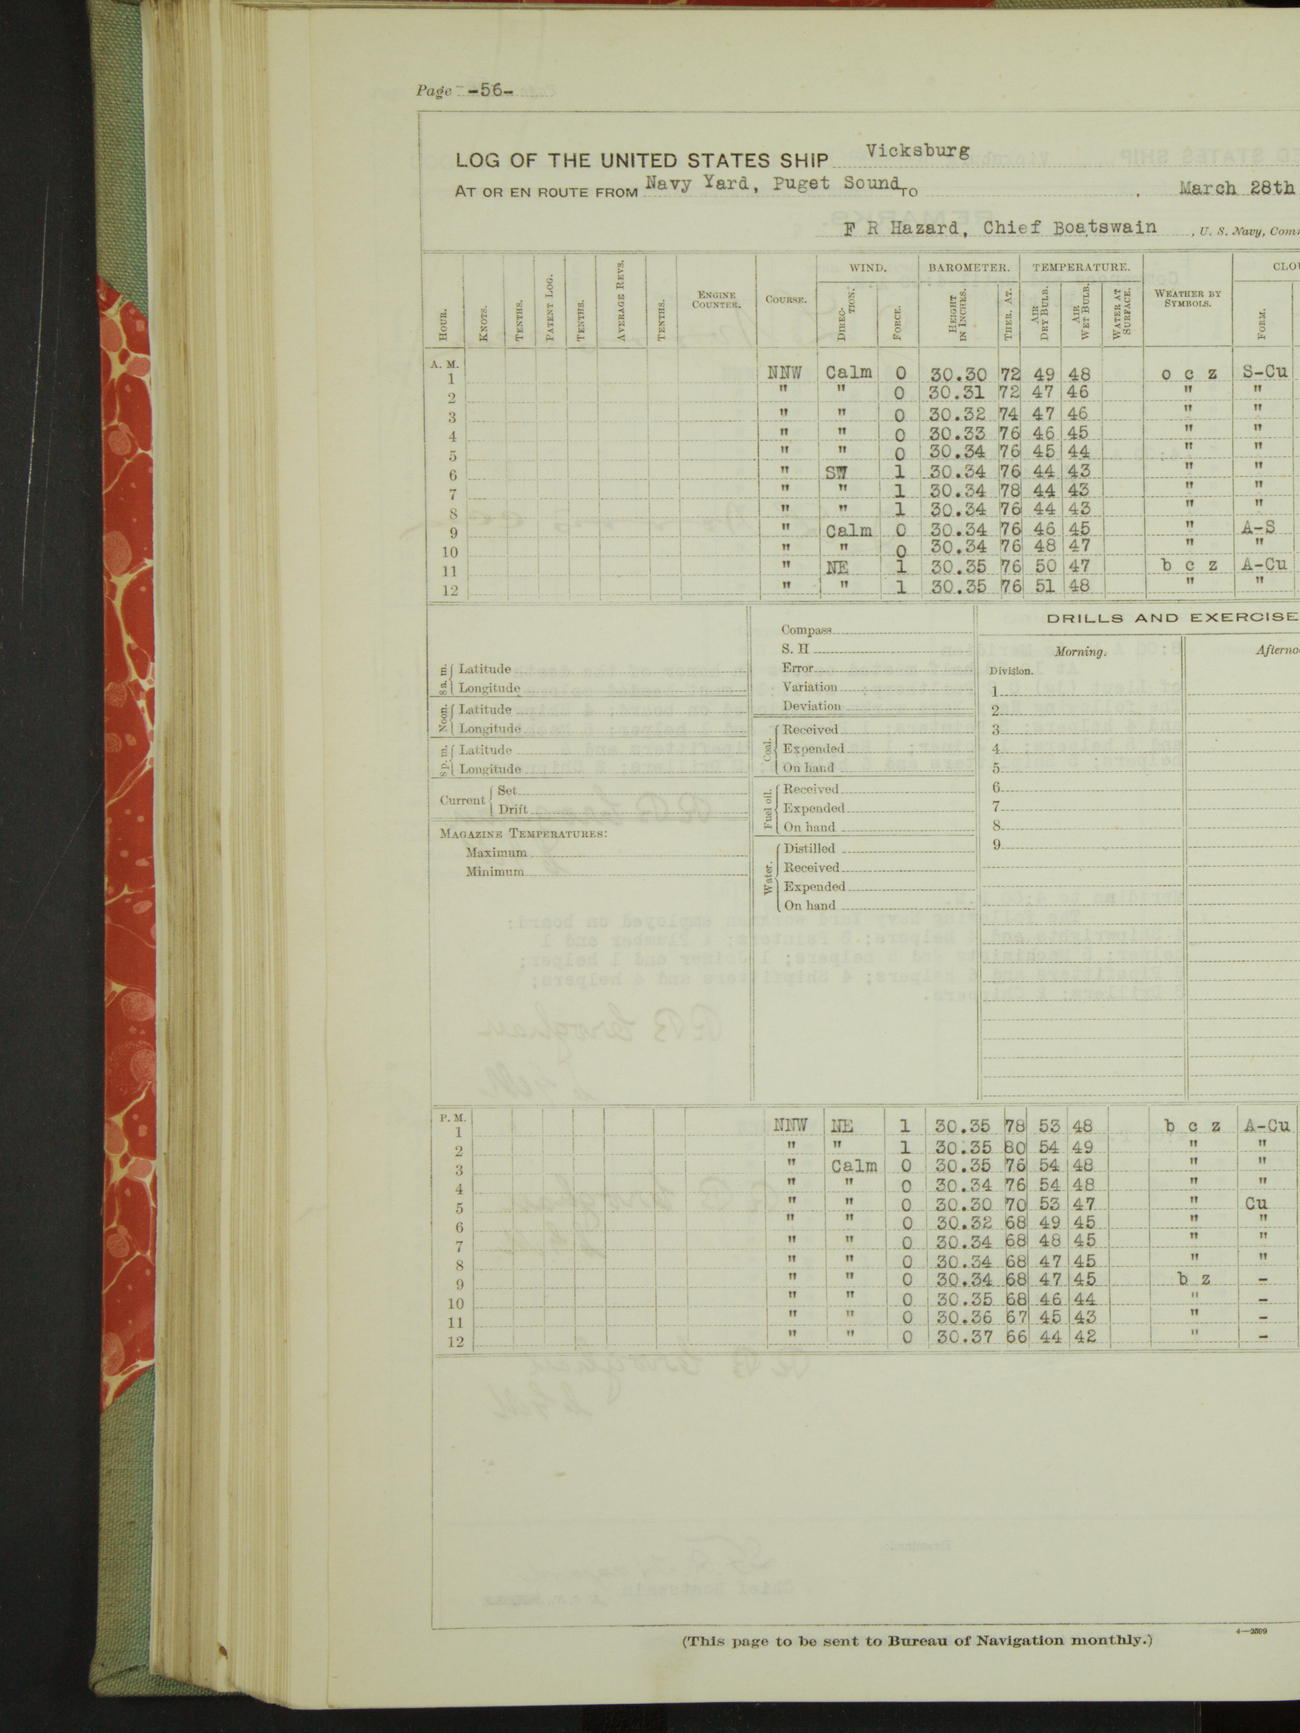 Page -56-
LOG OF THE UNITED STATES SHIP Vicksburg
AT OR EN ROUTE FROM Navy Yard, Puget Sound TO , March 28th
F R Hazard, Chief Boatswain , U. S. Navy, Com
WIND. BAROMETER. TEMPERATURE. CLO
HOUR. KNOTS. TENTHS. PATENT LOG. TENTHS. AVERAGE REVS. TENTHS. ENGINE COUNTER. COURSE. DIRECTION. FORCE. HEIGHT IN INCHES. THER. AT. AIR DRY BULB. AIR WET BULB. WATER AT SURFACE. WEATHER BY SYMBOLS. FORM.
A. M.
1 NNW Calm 0 30.30 72 49 48 o c z S-Cu
2 " " 0 30.31 72 47 46 " "
3 " " 0 30.32 74 47 46 " "
4 " " 0 30.33 76 46 45 " "
5 " " 0 30.34 76 45 44 " "
6 " SW 1 30.34 76 44 43 " "
7 " " 1 30.34 78 44 43 " "
8 " " 1 30.34 76 44 43 " "
9 " Calm 0 30.34 76 46 45 " A-S
10 " " 0 30.34 76 48 47 " "
11 " NE 1 30.35 76 50 47 b c z A-Cu
12 " " 1 30.35 76 51 48 " "
8 a. m. Latitude
Longitude
Noon. Latitude
Longitude
8 p. m. Latitude
Longitude
Current Set
Drift
MAGAZINE TEMPERATURES:
Maximum
Minimum
Compass
S. H
Error
Variation
Deviation
Coal. Received
Expended
On hand
Fuel oil. Received
Expended
On hand
Water. Distilled
Received
Expended
On hand
DRILLS AND EXERCISE
Morning. Afterno
Division.
1
2
3
4
5
6
7
8
9
P. M.
1 NNW NE 1 30.35 78 53 48 b c z A-Cu
2 " " 1 30.35 80 54 49 " "
3 " Calm 0 30.35 76 54 48 " "
4 " " 0 30.34 76 54 48 " "
5 " " 0 30.30 70 53 47 " Cu
6 " " 0 30.32 68 49 45 " "
7 " " 0 30.34 68 48 45 " "
8 " " 0 30.34 68 47 45 " "
9 " " 0 30.34 68 47 45 b z -
10 " " 0 30.35 68 46 44 " -
11 " " 0 30.36 67 45 43 " -
12 " " 0 30.37 66 44 42 " -
(This page to be sent to Bureau of Navigation monthly.)
4—2509